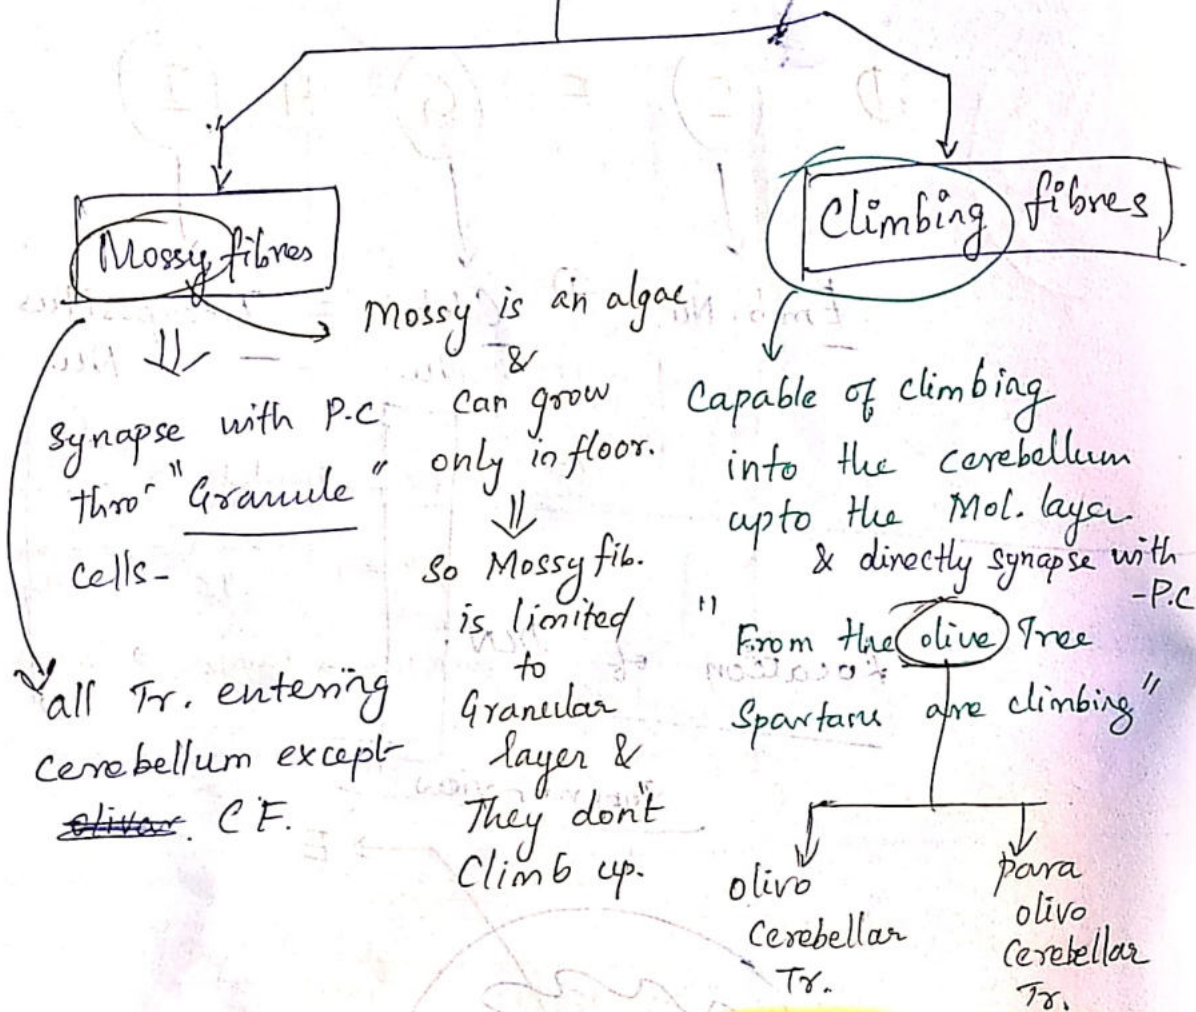 Mossy fibres
Synapse with P.C.
thro' "Granule"
cells-
all Tr. entering
Cerebellum except
olivar. C F.
Mossy is an algae
&
can grow
only in floor.
So Mossy fib.
is limited
to
Granular
layer &
They don't
Climb up.
Climbing fibres
Capable of climbing
into the cerebellum
upto the Mol. layer
& directly synapse with
-P.C
"From the olive Tree
Spartans are climbing"
olivo
Cerebellar
Tr.
para
olivo
Cerebellar
Tr.